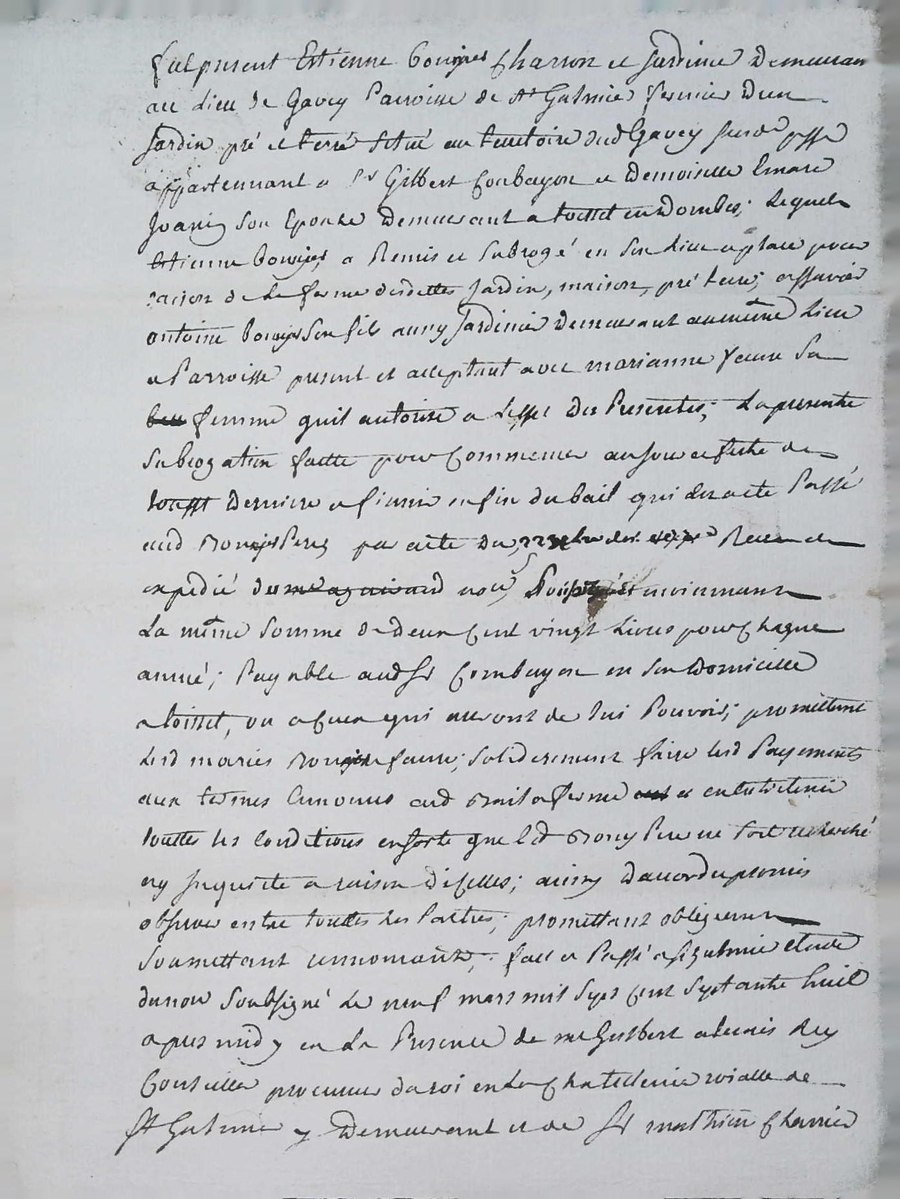 fut present Estienne Bouyer Charron et Jardinier Demeurant
au Lieu de Gavey Parroisse de st Galmier fermier Dun
Jardin pré et terre situé au territoire dud Gavey susd ppsse
appartennant a sr Gilbert Combayon et Demoiselle Emare
Joanin son Epouse Demeurant a toisset en Dombes; Lequel
Estienne bouyer a Remis et subrogé en son Lieu et place pour
raison de La ferme desdittes Jardin, maison, pré terre; assavoir
antoine bouyer son fils aussy Jardinier Demeurant au même Lieu
et Parroisse present et acceptant avec marianne faure sa
femme quil autorise a Leffet Des Presentes; La presente
subrogation faitte pour Commencer au jour et fete de
touss't Derniere et finir en fin du bail qui
aud Bouyer Pere par acte du Recu
expedié no're moiennant
La même somme de Deux Cent vingt Livres pour Chaque
année; Payable aud sr Combayon en son Domicille
a toisset, ou a Ceux qui auront de lui Pouvoir; promettant
Lesd mariés Bouyer faure; solidairement faire lesd Payements
aux termes Ennoncés aud Bail a ferme et entretenir
touttes les Conditions ensorte que led Bouy Pere ne soit recherché
ny Inquieté a raison d'icelles; ainsy Daccord promis
observer entre touttes les Parties; promettant obligeant
soumettant renonçant; fait et Passé a st galmier etude
du no're soubsigné Le neuf mars mil sept Cent septante huit
apres midy en La Presence de me Gilbert
Conseiller procureur du roi en La Chatellenie roialle de
st Galmier y Demeurant et de sr mathieu Charrier